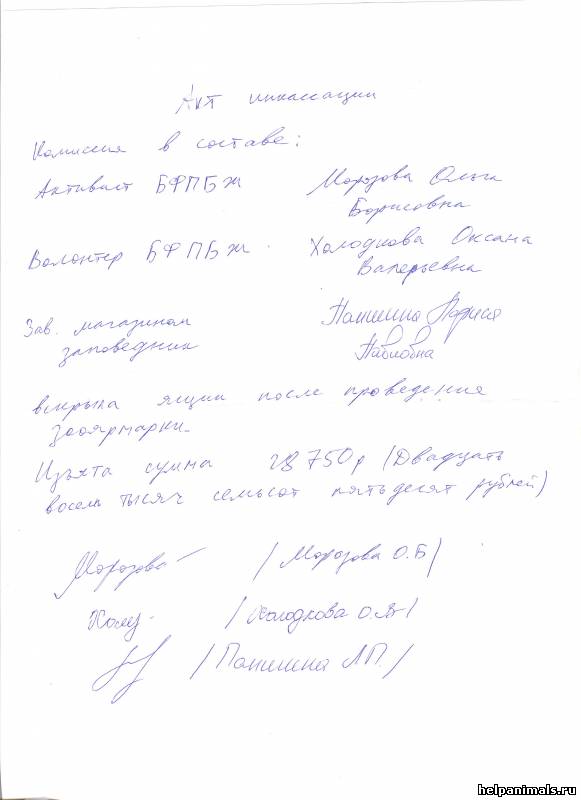 Акт инкассации
Комиссия в составе:
Активист БФПБЖ Морозова Ольга
Борисовна
Волонтер БФПБЖ. Холодкова Оксана
Валерьевна
Зав. магазином Панишина Лариса
заповедник Павловна
вскрыла ящик после проведения
зооярмарки.
Изъята сумма 28 750р (Двадцать
восемь тысяч семьсот пятьдесят рублей)
Морозова /Морозова О.Б/
Холод. /Холодкова О.В/
/Панишина Л.П./
helpanimals.ru